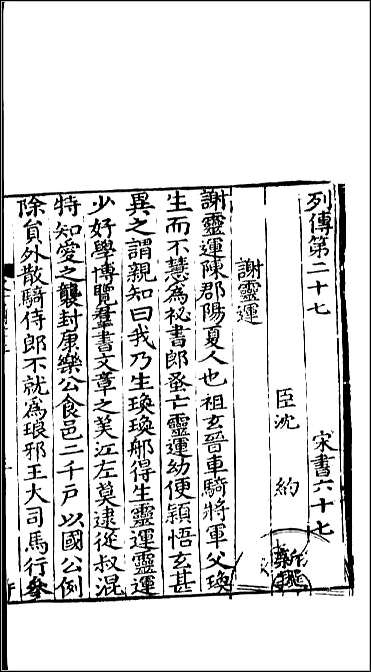 列傳第二十七 宋書六十七
臣沈 約
謝靈運
謝靈運陳郡陽夏人也祖玄晉車騎將軍父瑍
生而不慧爲祕書郎蚤亡靈運幼便穎悟玄甚
異之謂親知曰我乃生瑍瑍那得生靈運靈運
少好學博覽羣書文章之美江左莫逮從叔混
特知愛之襲封康樂公食邑二千戶以國公例
除員外散騎侍郎不就爲琅邪王大司馬行參